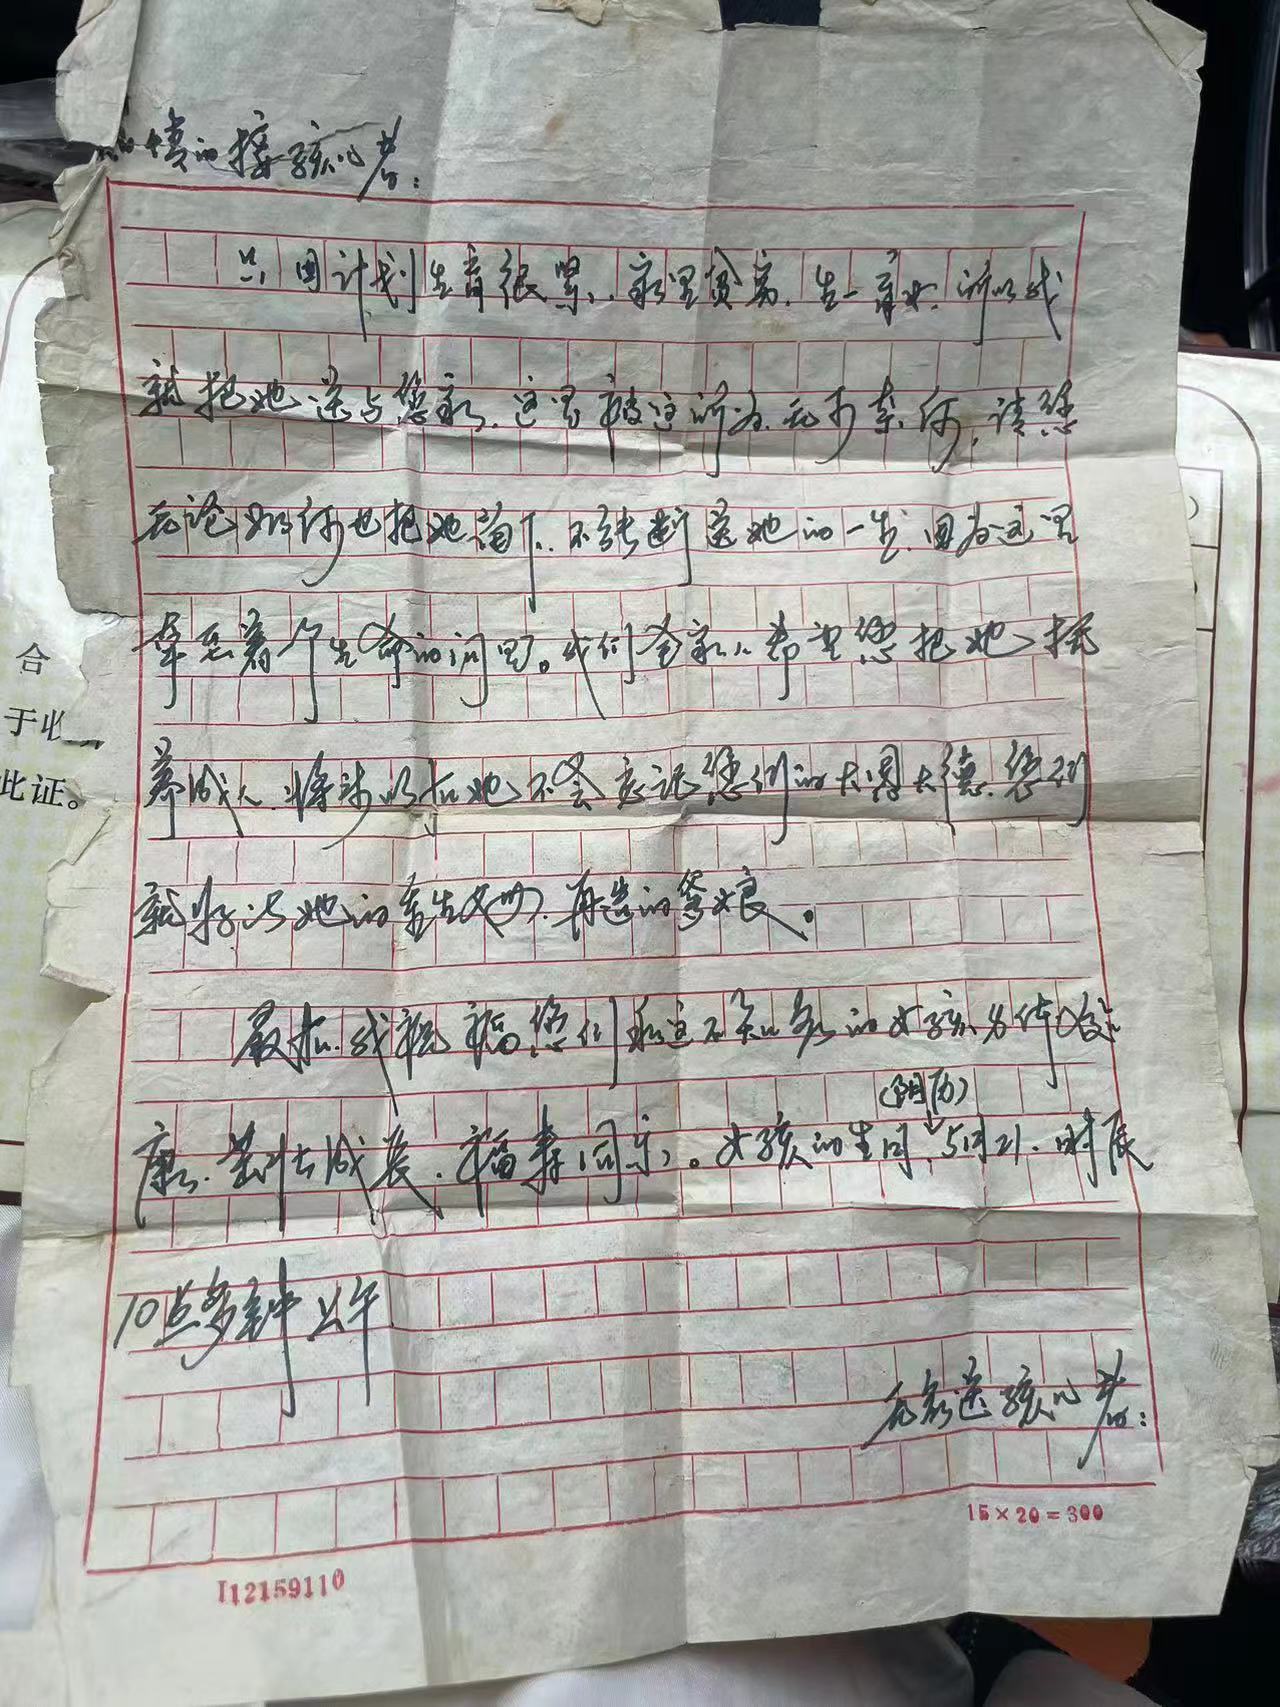 情的接孩儿者：
只因计划生育很紧，家里贫寒，生一育女，所以我
就把她送与您家，这里被迫所为，无可奈何，请您
无论如何也把她留下，不能断送她的一生，因为这里
牵忍着个生命的问罢。我们全家人希望您把她抚
养成人，将来以后她不会忘记您们的大恩大德，您们
就好比她的亲生父母，再造的爹娘。
最后，我祝福您们和这不知名的女孩，身体健
康，茁壮成长，福寿同享。女孩的生日，5月21，时辰
（阴历）
10点多钟上午
无名送孩儿者：
15×20=300
I12159110
合
于收
此证。